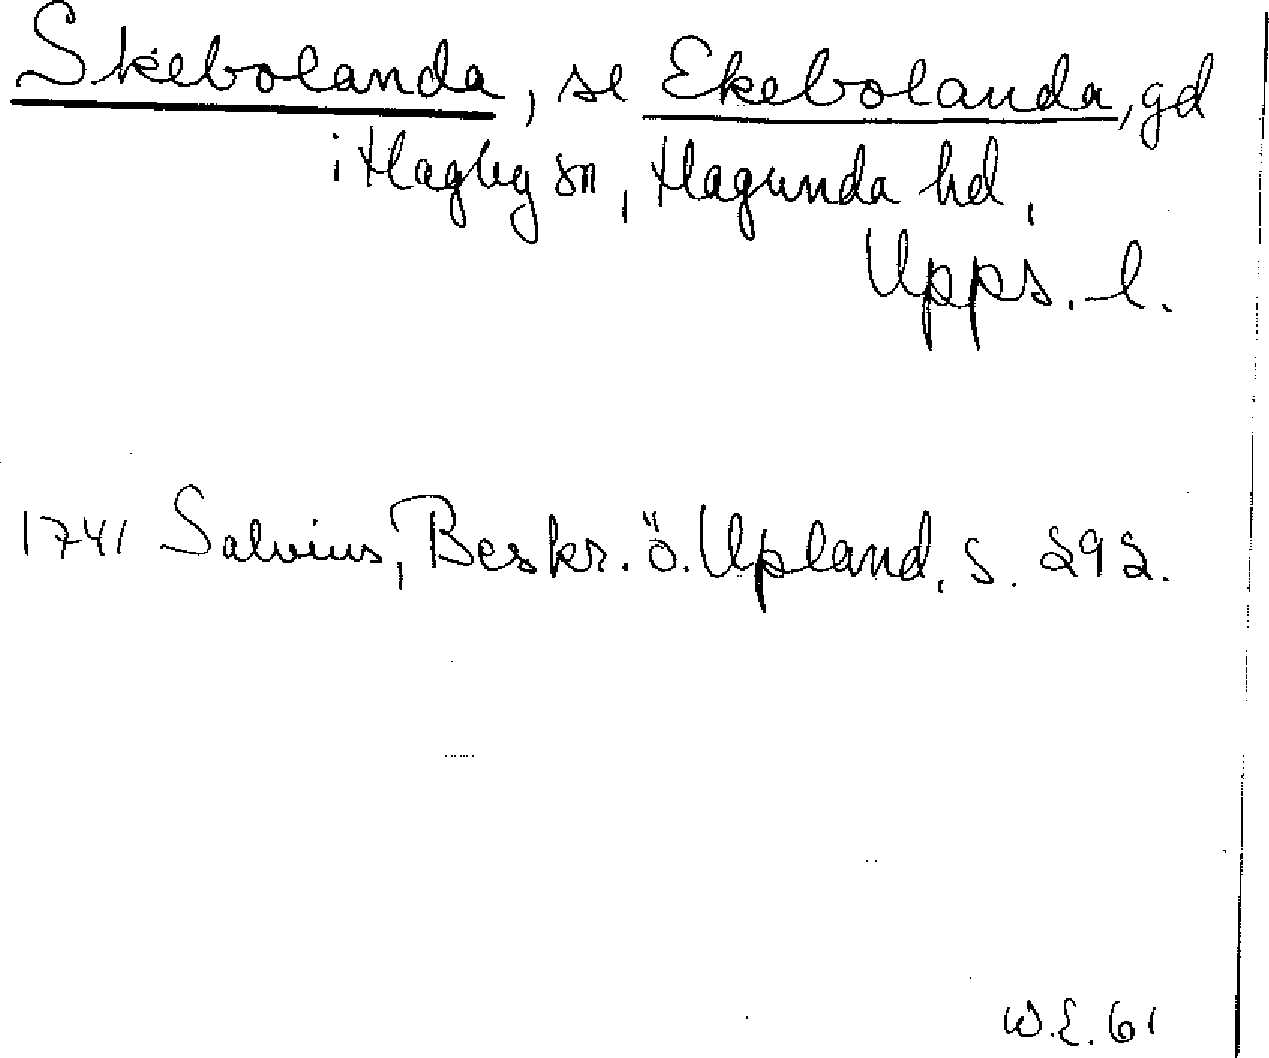 Skebolanda, se Ekebolanda, gd
i Hagby sn, Hagunda hd,
Upps. l.
1741 Salvius, Beskr. ö. Upland, S. 292.
W.E. 61